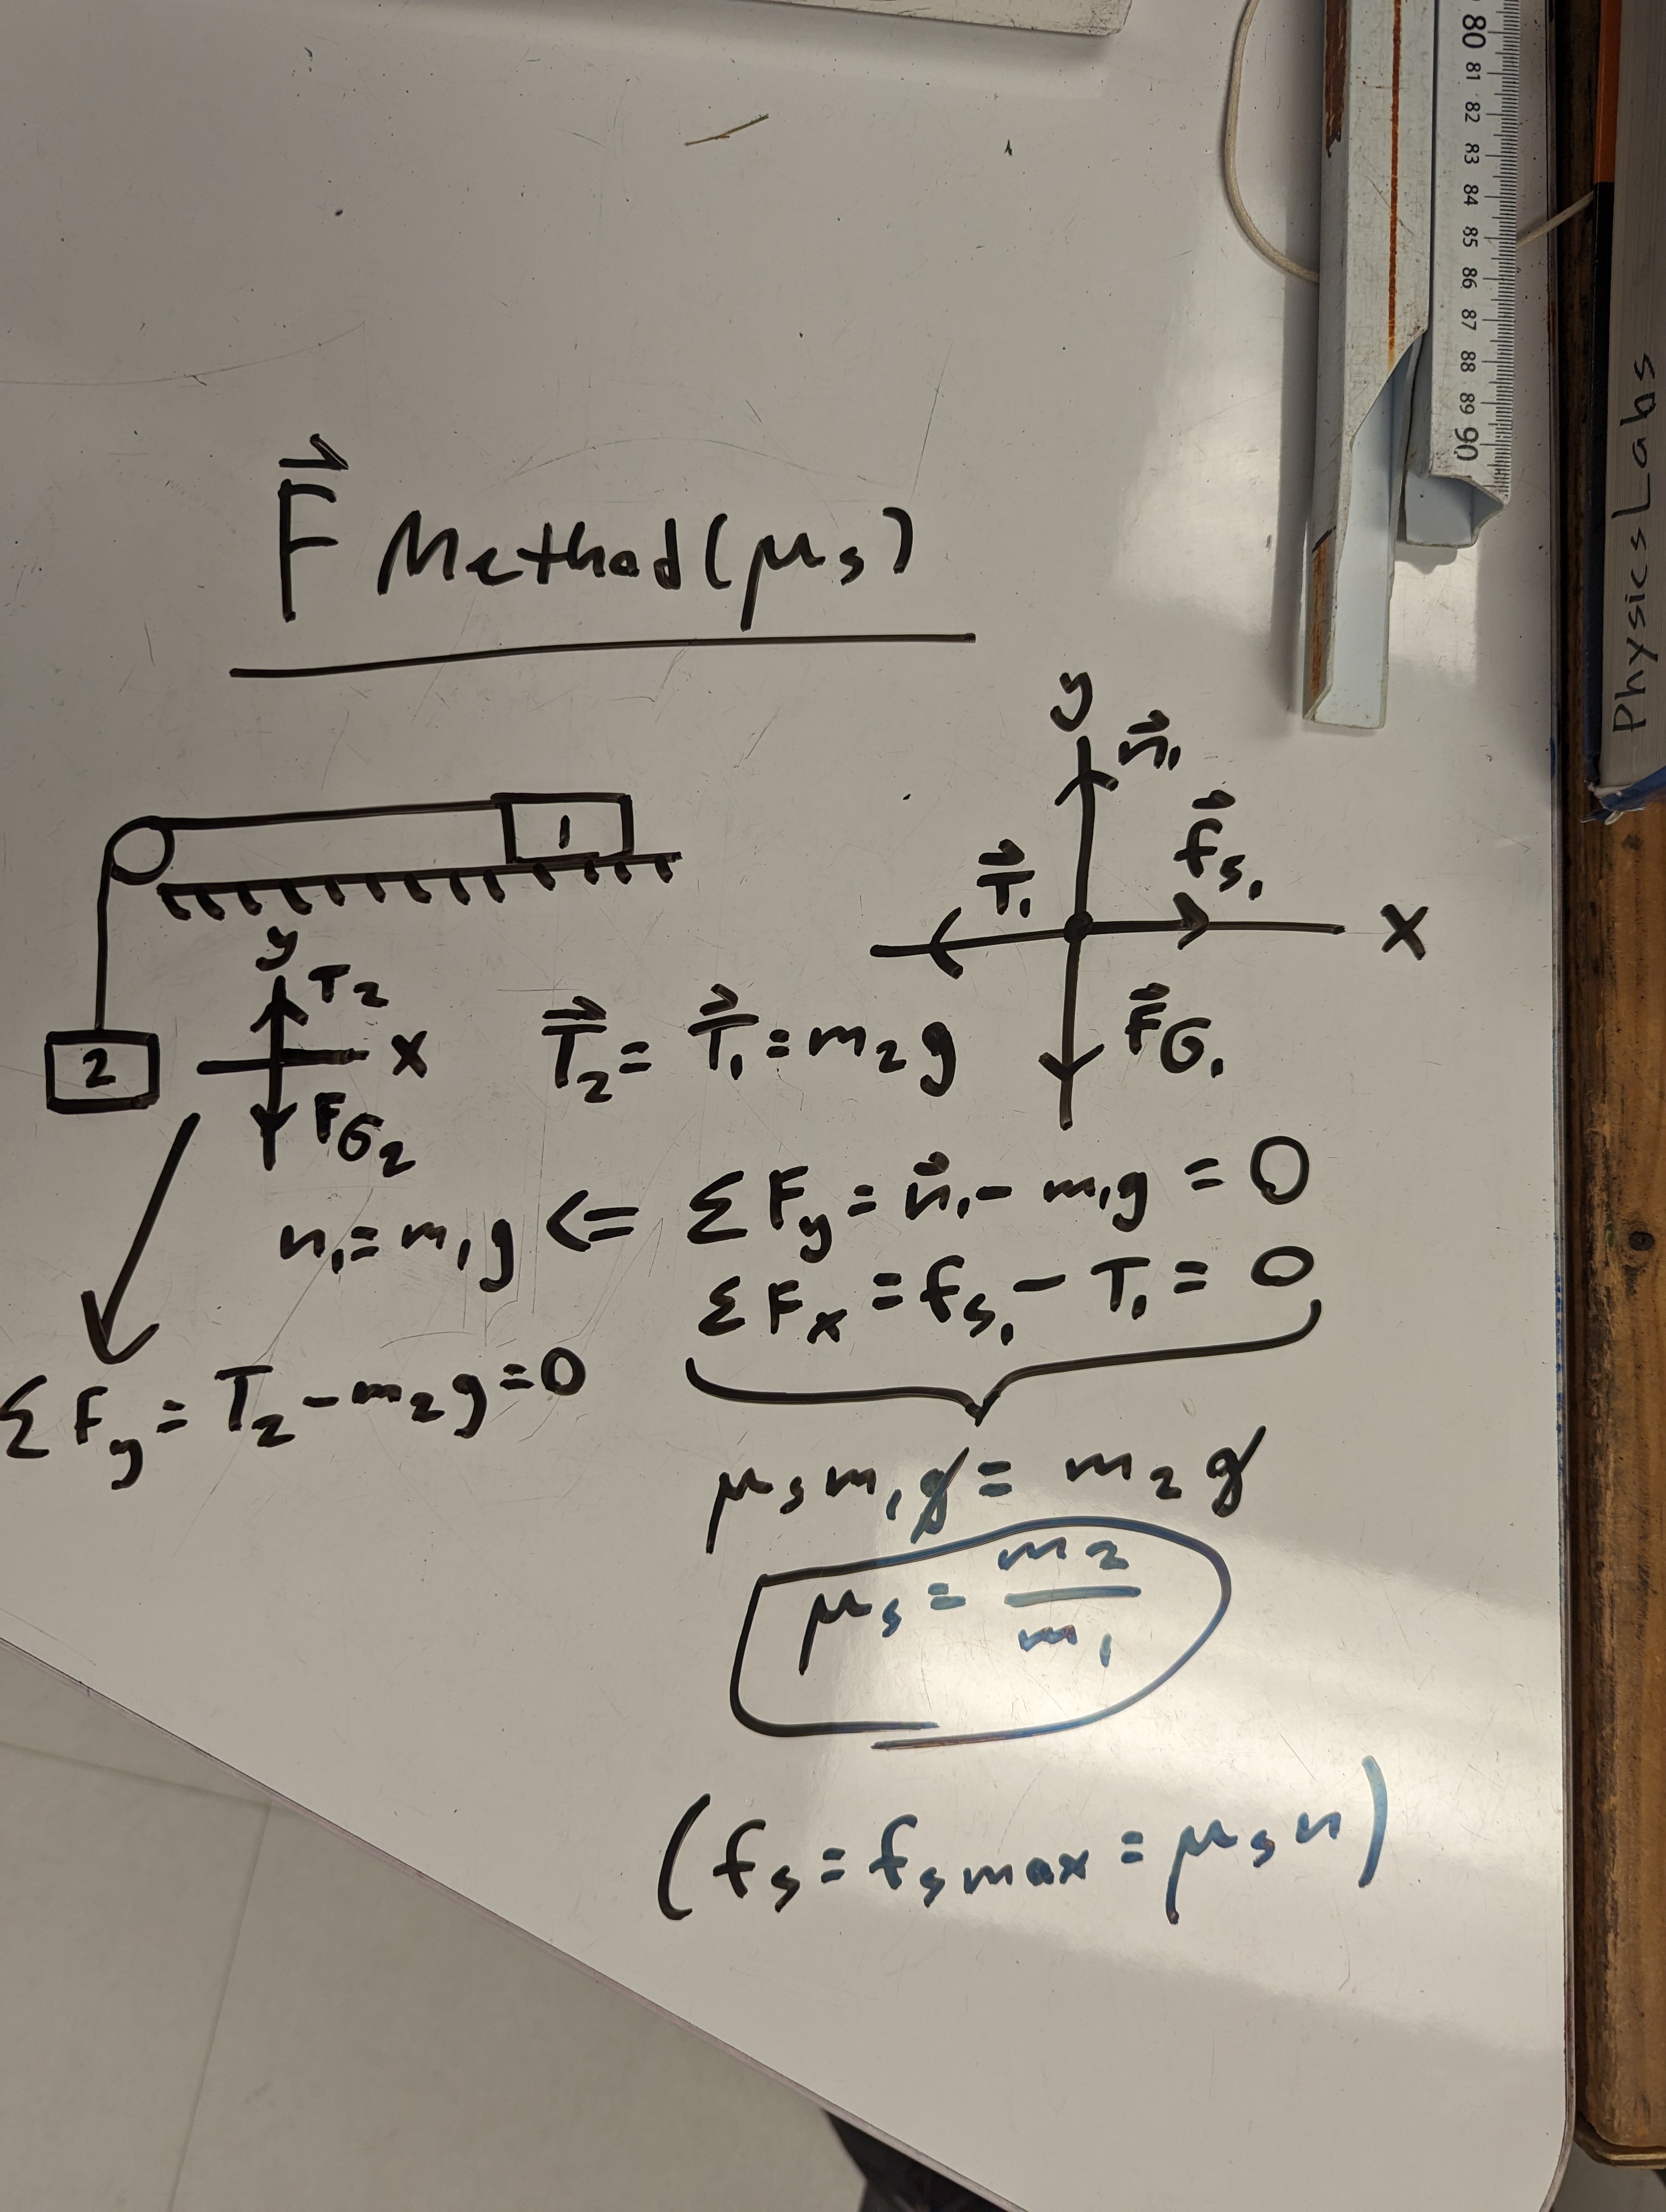 80 81 82 83 84 85 86 87 88 89 90
Physics Labs
F⃗ Method (μₛ)
1
2
y
n⃗₁
f⃗ₛ₁
T⃗₁
x
F⃗G₁
y
T₂
x
FG₂
T⃗₂ = T⃗₁ = m₂g
n₁ = m₁g <= ΣFy = n⃗₁ - m₁g = 0
ΣFx = fₛ₁ - T₁ = 0
ΣFy = T₂ - m₂g = 0
μₛm₁g = m₂g
μₛ = m₂/m₁
(fₛ = fₛmax = μₛn)